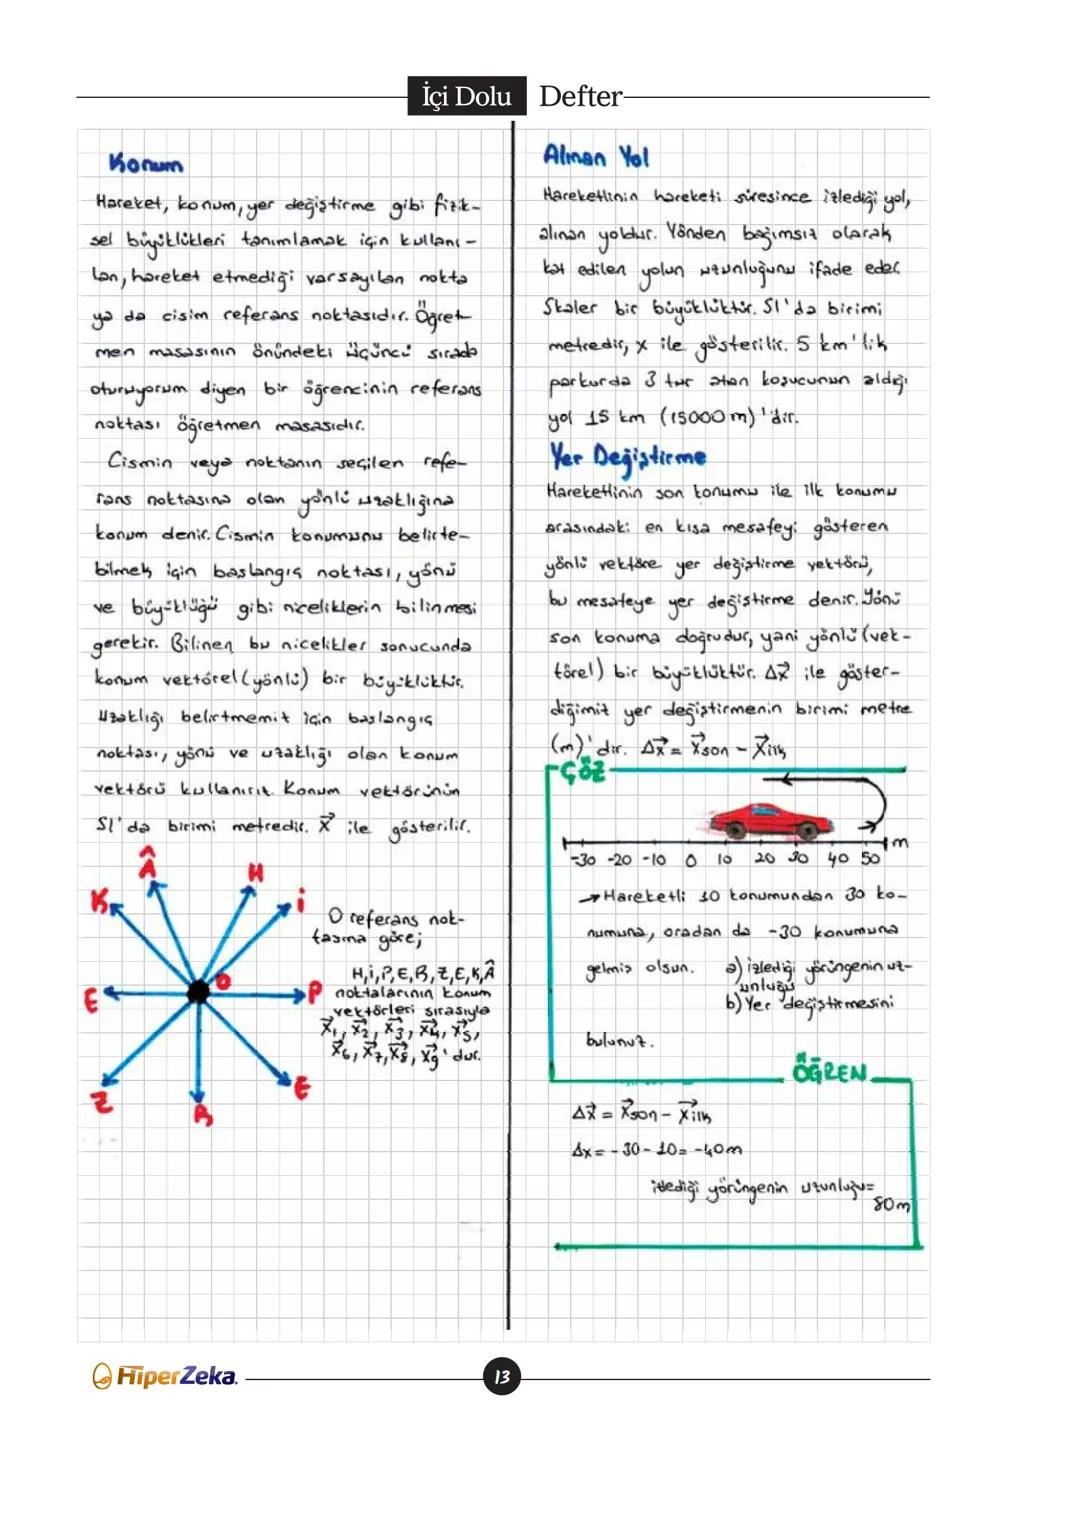 İçi Dolu Defter
Konum
Hareket, konum, yer değiştirme gibi fizik-
sel büyüklükleri tanımlamak için kullanı-
lan, hareket etmediği varsayılan nokta
ya da cisim referans noktasıdır. Öğret-
men masasının önündeki üçüncü sırada
oturuyorum diyen bir öğrencinin referans
noktası öğretmen masasıdır.
Cismin veya noktanın seçilen refe-
rans noktasına olan yönlü uzaklığına
konum denir. Cismin konumunu belirte-
bilmek için başlangıç noktası, yönü
ve büyüklüğü gibi niceliklerin bilinmesi
gerekir. Bilinen bu nicelikler sonucunda
konum vektörel (yönlü) bir büyüklüktür.
Uzaklığı belirtmemiz için başlangıç
noktası, yönü ve uzaklığı olan konum
vektörü kullanırız. Konum vektörünün
SI'da birimi metredir. x⃗ ile gösterilir.
Â
H
K
i
O
E
P
Z
B
E
O referans nok-
tasına göre;
H,i,P,E,B,Z,E,K,Â
noktalarının konum
vektörleri sırasıyla
x⃗1, x⃗2, x⃗3, x⃗4, x⃗5,
x⃗6, x⃗7, x⃗8, x⃗9'dur.
Alınan Yol
Hareketlinin hareketi süresince izlediği yol,
alınan yoldur. Yönden bağımsız olarak
kat edilen yolun uzunluğunu ifade eder.
Skaler bir büyüklüktür. SI'da birimi
metredir, x ile gösterilir. 5 km'lik
parkurda 3 tur atan koşucunun aldığı
yol 15 km (15000 m)'dir.
Yer Değiştirme
Hareketlinin son konumu ile ilk konumu
arasındaki en kısa mesafeyi gösteren
yönlü vektöre yer değiştirme vektörü,
bu mesafeye yer değiştirme denir. Yönü
son konuma doğrudur, yani yönlü (vek-
törel) bir büyüklüktür. Δx⃗ ile göster-
diğimiz yer değiştirmenin birimi metre
(m)'dir. Δx⃗ = x⃗son - x⃗ilk
ÇÖZ
m
-30 -20 -10 0 10 20 30 40 50
→ Hareketli 10 konumundan 30 ko-
numuna, oradan da -30 konumuna
gelmiş olsun. a) izlediği yörüngenin uz-
unluğu
b) Yer değiştirmesini
bulunuz.
ÖĞREN
Δx⃗ = x⃗son - x⃗ilk
Δx = -30 - 10 = -40m
izlediği yörüngenin uzunluğu=
80m
HiperZeka.
13